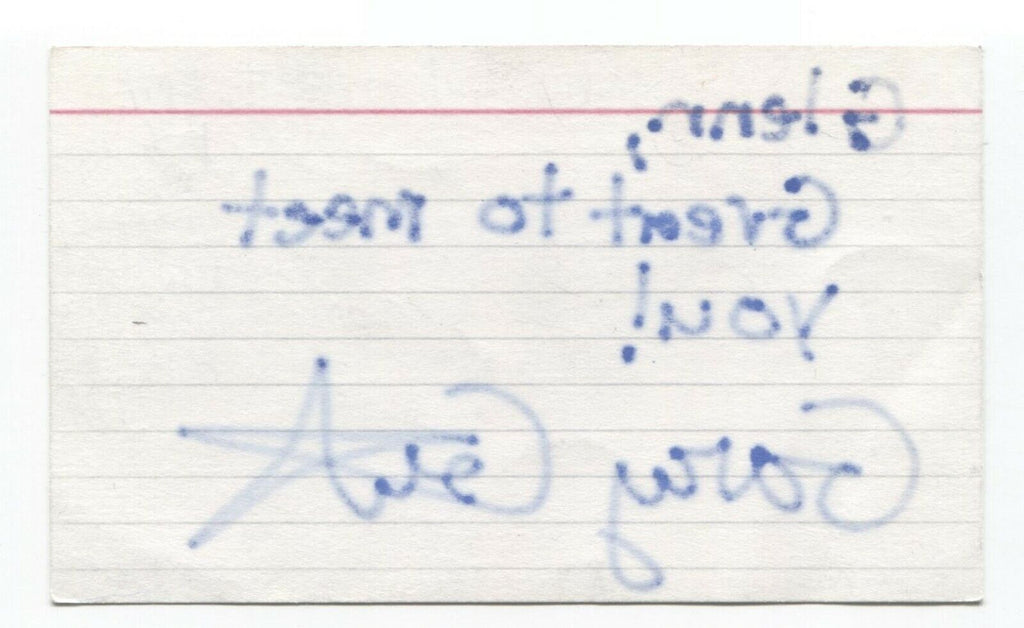 Glenn,
Great to meet
you!
Cory